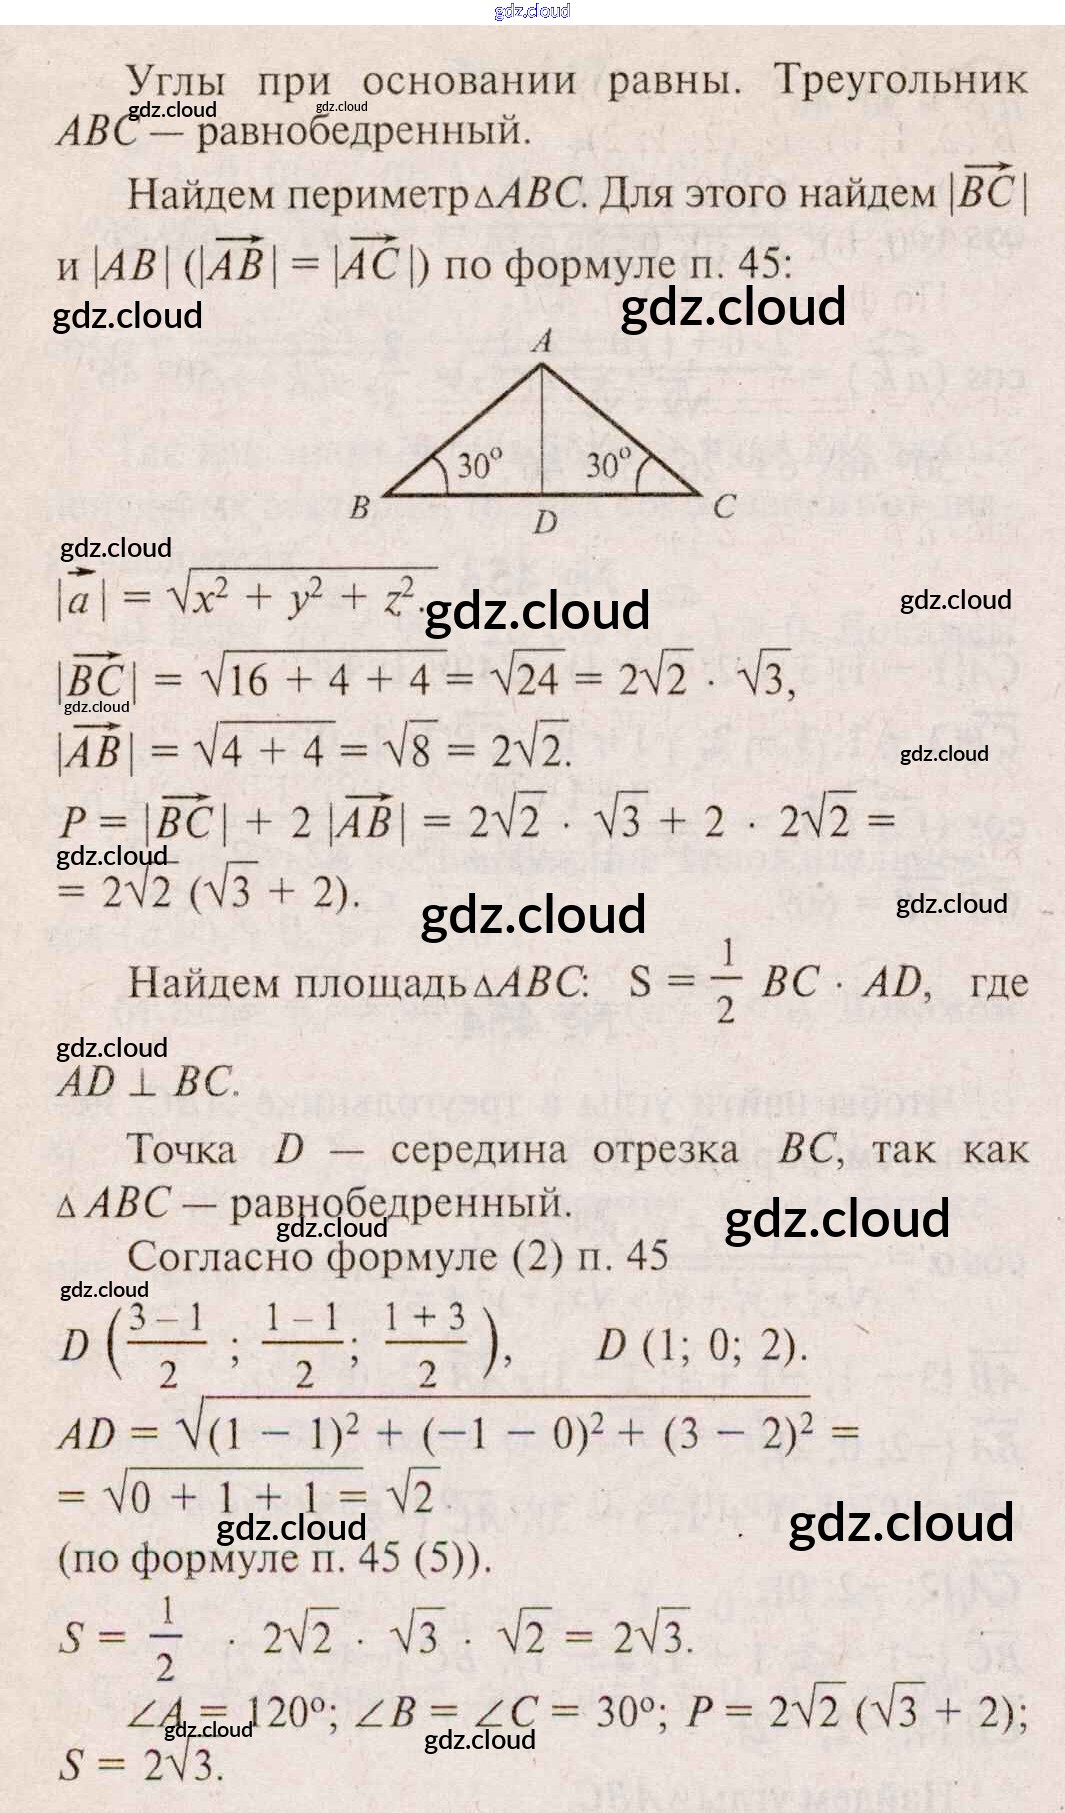 gdz.cloud
Углы при основании равны. Треугольник
gdz.cloud gdz.cloud
ABC — равнобедренный.
Найдем периметр △ABC. Для этого найдем |BC|
и |AB| (|AB| = |AC|) по формуле п. 45:
gdz.cloud gdz.cloud
A
30° 30°
B D C
gdz.cloud
|a| = √x² + y² + z².
gdz.cloud gdz.cloud
|BC| = √16 + 4 + 4 = √24 = 2√2 · √3,
gdz.cloud
|AB| = √4 + 4 = √8 = 2√2.
gdz.cloud
P = |BC| + 2 |AB| = 2√2 · √3 + 2 · 2√2 =
gdz.cloud
= 2√2 (√3 + 2).
gdz.cloud gdz.cloud
Найдем площадь △ABC: S = 1/2 BC · AD, где
gdz.cloud
AD ⊥ BC.
Точка D — середина отрезка BC, так как
△ABC — равнобедренный.
gdz.cloud gdz.cloud
Согласно формуле (2) п. 45
gdz.cloud
D (3 – 1/2 ; 1 – 1/2; 1 + 3/2), D (1; 0; 2).
AD = √(1 − 1)² + (−1 − 0)² + (3 − 2)² =
= √0 + 1 + 1 = √2
gdz.cloud gdz.cloud
(по формуле п. 45 (5)).
S = 1/2 · 2√2 · √3 · √2 = 2√3.
∠A = 120°; ∠B = ∠C = 30°; P = 2√2 (√3 + 2);
gdz.cloud gdz.cloud
S = 2√3.